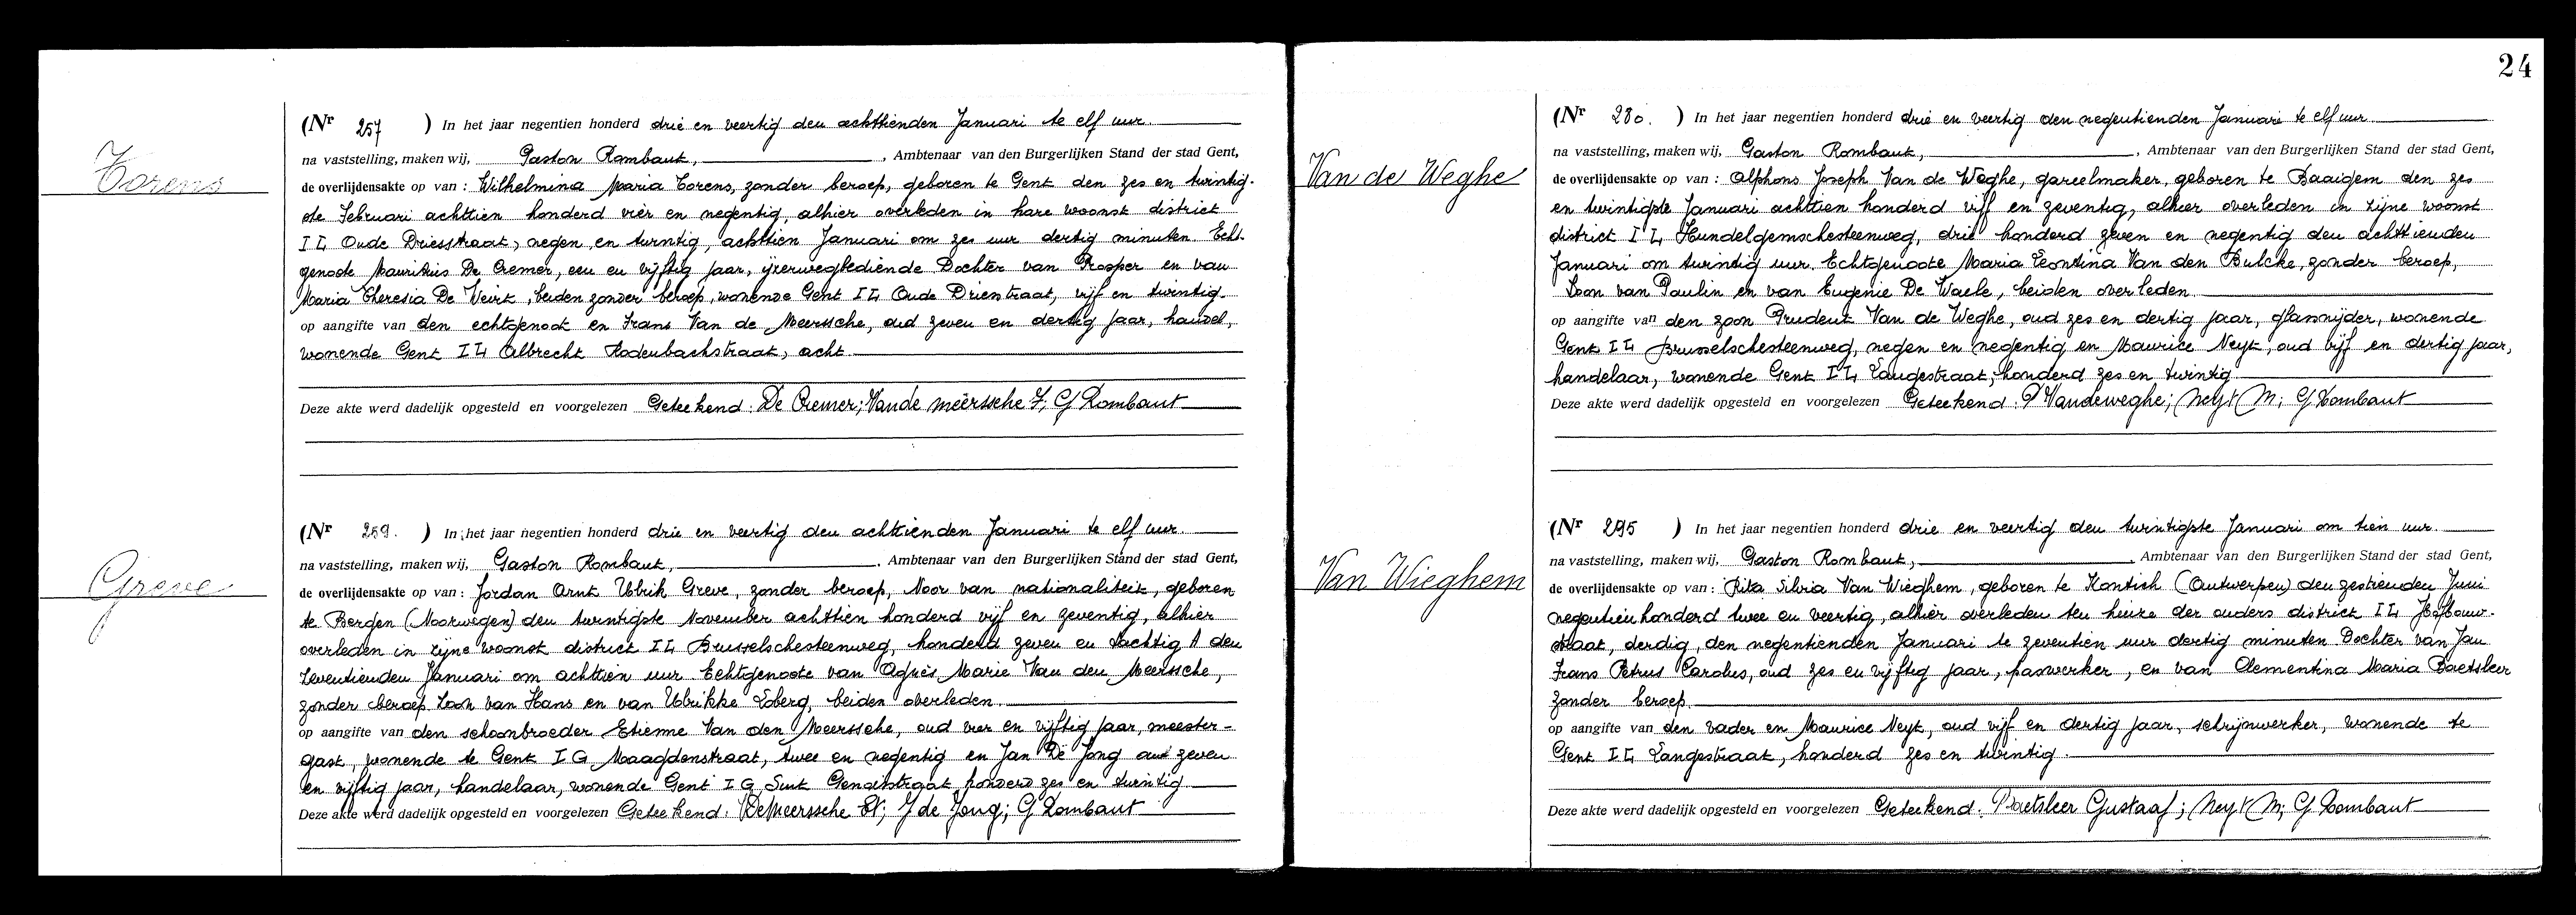 Torens
(Nr 257 ) In het jaar negentien honderd drie en veertig den achttienden Januari te elf uur.
na vaststelling, maken wij, Gaston Rombaut, , Ambtenaar van den Burgerlijken Stand der stad Gent,
de overlijdensakte op van : Wilhelmina Maria Torens, zonder beroep, geboren te Gent den zes en twintig-
ste Februari achttien honderd vier en negentig, alhier overleden in hare woonst district
I L, Oude Driesstraat, negen en twintig, achttien Januari om zes uur dertig minuten. Echt-
genoote Mauritius De Cremer, een en vijftig jaar, ijzerwegbediende Dochter van Prosper en van
Maria Theresia De Weirt, beiden zonder beroep, wonende Gent I L, Oude Driestraat, vijf en twintig.
op aangifte van den echtgenoot en Frans Van de Meerssche, oud zeven en dertig jaar, handel,
wonende Gent I L, Albrecht Rodenbachstraat, acht.
Deze akte werd dadelijk opgesteld en voorgelezen Geteekend: De Cremer; Vande meerssche F; G Rombaut
Greve
(Nr 259. ) In het jaar negentien honderd drie en veertig den achttienden Januari te elf uur.
na vaststelling, maken wij, Gaston Rombaut, , Ambtenaar van den Burgerlijken Stand der stad Gent,
de overlijdensakte op van : Jordan Arnt Ulrik Greve, zonder beroep, Noor van nationaliteit, geboren
te Bergen (Noorwegen) den twintigste November achttien honderd vijf en zeventig, alhier
overleden in zijne woonst district I L, Brusselschesteenweg, honderd zeven en tachtig A den
zeventienden Januari om achttien uur. Echtgenoote van Agnès Marie Van den Meerssche,
zonder beroep. Zoon van Hans en van Ulrikke Loberg, beiden overleden.
op aangifte van den schoonbroeder Etienne Van den Meerssche, oud vier en vijftig jaar, meester-
gast, wonende te Gent I G Maagdenstraat, twee en negentig en Jan De Jong oud zeven
en vijftig jaar, handelaar, wonende Gent I G, Sint Genoisstraat honderd zes en twintig
Deze akte werd dadelijk opgesteld en voorgelezen Geteekend: Meerssche Et; J de Jong; G Rombaut
24
Van de Weghe
(Nr 280. ) In het jaar negentien honderd drie en veertig den negentienden Januari te elf uur.
na vaststelling, maken wij, Gaston Rombaut, , Ambtenaar van den Burgerlijken Stand der stad Gent,
de overlijdensakte op van : Alphons Joseph Van de Weghe, gareelmaker, geboren te Baaigem den zes
en twintigste Januari achttien honderd vijf en zeventig, alhier overleden in zijne woonst
district I L, Hundelgemschesteenweg, drie honderd zeven en negentig den achttienden
Januari om twintig uur. Echtgenoote Maria Leontina Van den Bulcke, zonder beroep,
Zoon van Paulin en van Eugenie De Waele, beiden overleden.
op aangifte van den zoon Prudent Van de Weghe, oud zes en dertig jaar, glassnijder, wonende
Gent I L Brusselschesteenweg, negen en negentig en Maurice Neyt, oud vijf en dertig jaar,
handelaar, wonende Gent I L, Langestraat, honderd zes en twintig
Deze akte werd dadelijk opgesteld en voorgelezen Geteekend: P Vandeweghe; Neyt M; G Rombaut
Van Wieghem
(Nr 295 ) In het jaar negentien honderd drie en veertig den twintigste Januari om tien uur.
na vaststelling, maken wij, Gaston Rombaut, , Ambtenaar van den Burgerlijken Stand der stad Gent,
de overlijdensakte op van : Rita Silvia Van Wieghem, geboren te Kontich (Antwerpen) den zestienden Juni
negentien honderd twee en veertig, alhier overleden ten huize der ouders district I L, Hofbouw-
straat, dertig, den negentienden Januari te zeventien uur dertig minuten. Dochter van Jan
Frans Petrus Carolus, oud zes en vijftig jaar, paswerker, en van Clementina Maria Baetsleer
zonder beroep.
op aangifte van den vader en Maurice Neyt, oud vijf en dertig jaar, schrijnwerker, wonende te
Gent I L, Langestraat, honderd zes en twintig.
Deze akte werd dadelijk opgesteld en voorgelezen Geteekend: Baetsleer Gustaaf; Neyt M; G Rombaut